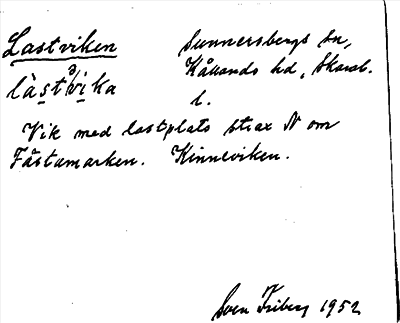 Lastviken Sunnersbergs sn,
làstvika Kållands hd, Skarab.
l.
Vik med lastplats strax N om
Fåstamarken. Kinneviken.
Sven Friberg 1952